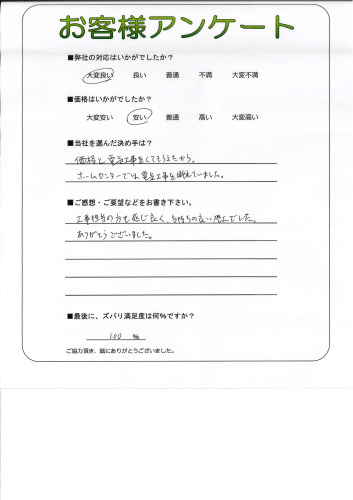 お客様アンケート
■弊社の対応はいかがでしたか？
大変良い 良い 普通 不満 大変不満
■価格はいかがでしたか？
大変安い 安い 普通 高い 大変高い
■当社を選んだ決め手は？
価格と電気工事をしてもらえたから。
ホームセンターでは電気工事を断られていました。
■ご感想・ご要望などをお書き下さい。
工事担当の方も感じ良く、気持ちの良い施工でした。
ありがとうございました。
■最後に、ズバリ満足度は何%ですか？
100 %
ご協力頂き、誠にありがとうございました。